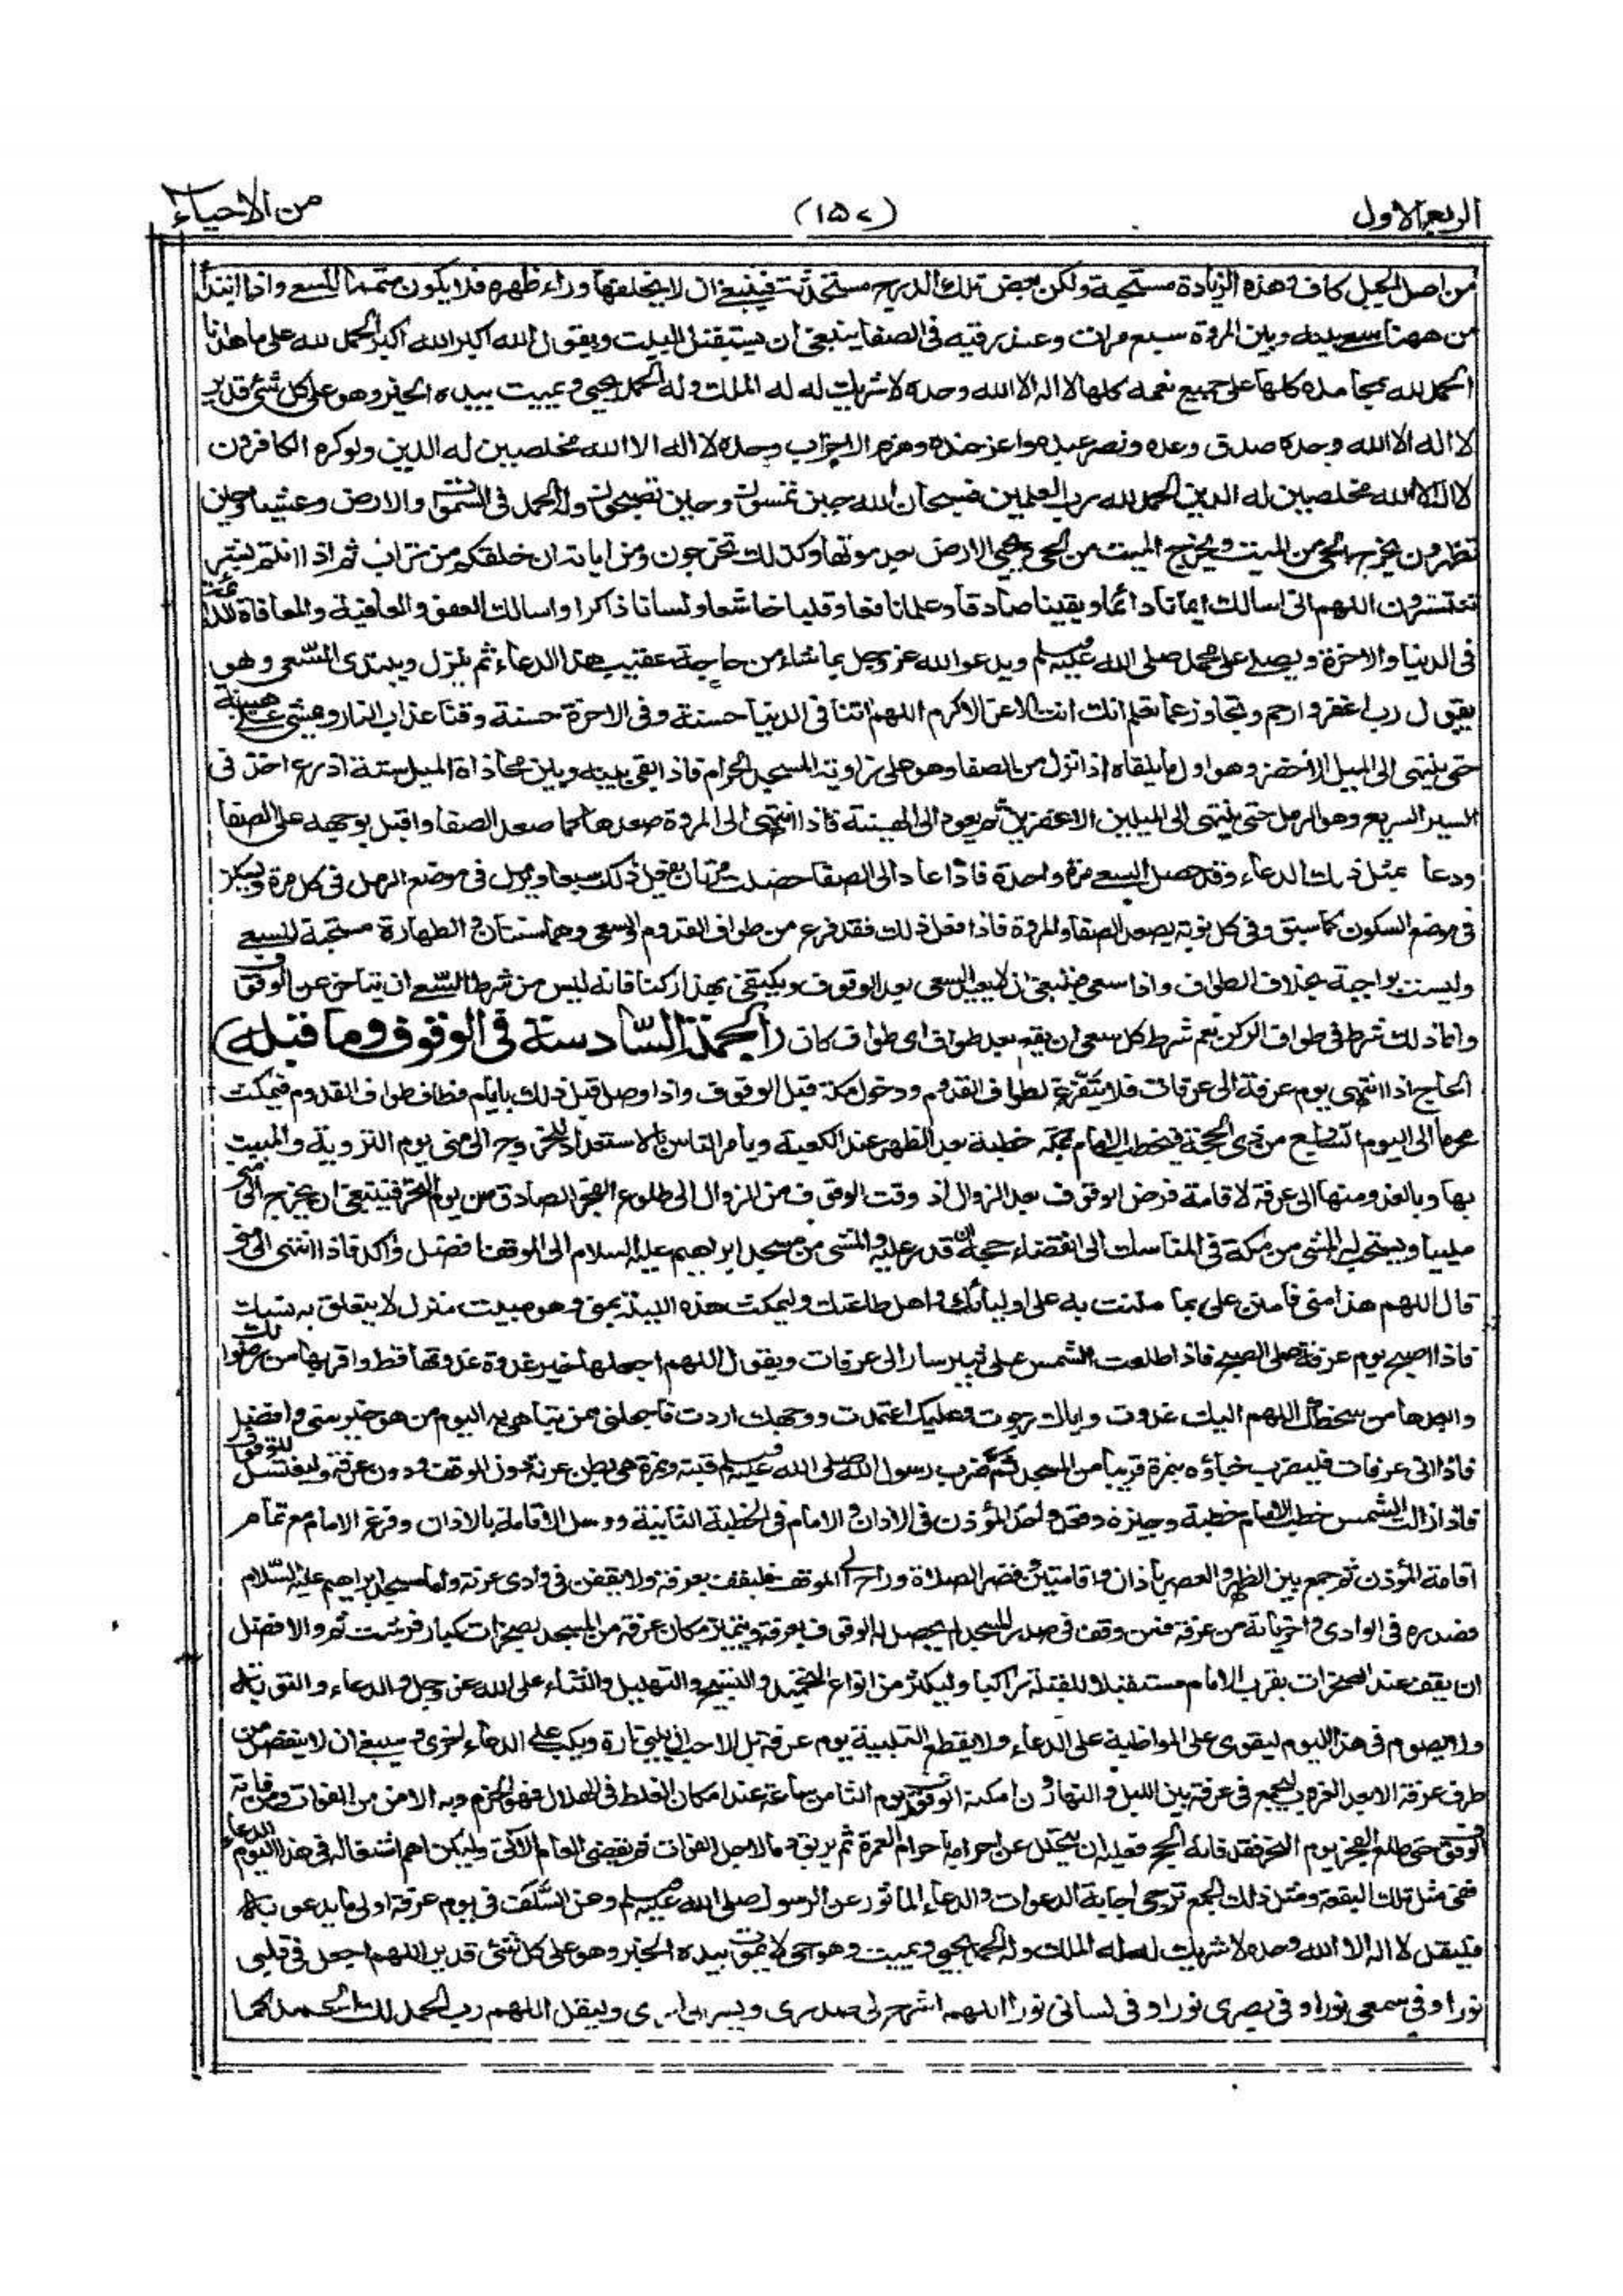 الربع الاول (١٥٧) من الاحياء
من اصل الجبل كاف وهذه الزيادة مستحبة ولكن بعض تلك الدرج مستحدثة فينبغي ان لا يخلفها وراء ظهره فلا يكون متمما للسعي واذا ابتدأ
من ههنا سعى بينه وبين المروة سبع مرات وعند رقيه في الصفا ينبغي ان يستقبل البيت ويقول الله اكبر الله اكبر الحمد لله على ما هدانا
الحمد لله بمحامده كلها على جميع نعمه كلها لا اله الا الله وحده لا شريك له له الملك وله الحمد يحيي ويميت بيده الخير وهو على كل شئ قدير
لا اله الا الله وحده صدق وعده ونصر عبده واعز جنده وهزم الاحزاب وحده لا اله الا الله مخلصين له الدين ولو كره الكافرون
لا اله الا الله مخلصين له الدين الحمد لله رب العلمين فسبحان الله حين تمسون وحين تصبحون وله الحمد في السموات والارض وعشيا وحين
تظهرون يخرج الحي من الميت ويخرج الميت من الحي ويحيي الارض بعد موتها وكذلك تخرجون ومن اياته ان خلقكم من تراب ثم اذا انتم بشر
تنتشرون اللهم اني اسالك ايمانا دائما ويقينا صادقا وعلما نافعا وقلبا خاشعا ولسانا ذاكرا واسالك العفو والعافية والمعافاة الدائمة
في الدنيا والاخرة ويصلي على محمد صلى الله عليه وسلم ويدعو الله عز وجل بما شاء من حاجة عقيب هذا الدعاء ثم ينزل ويبتدئ السعي وهو
يقول رب اغفر وارحم وتجاوز عما تعلم انك انت الاعز الاكرم اللهم اتنا في الدنيا حسنة وفي الاخرة حسنة وقنا عذاب النار ويمشي على هينة
حتى ينتهى الى الميل الاخضر وهو اول ما يلقاه اذا نزل من الصفا وهو على زاوية المسجد الحرام فاذا بقي بينه وبين محاذاة الميل ستة اذرع اخذ في
السير السريع وهو الرمل حتى ينتهى الى الميلين الاخضرين ثم يعود الى الهينة فاذا انتهى الى المروة صعدها كما صعد الصفا واقبل بوجهه على الصفا
ودعا بمثل ذلك الدعاء وقد حصل السعي مرة واحدة فاذا عاد الى الصفا حصلت مرتان يفعل ذلك سبعا ويرمل في موضع الرمل في كل مرة ويسكن
في موضع السكون كما سبق وفي كل نوبة يصعد الصفا والمروة فاذا فعل ذلك فقد فرغ من طواف القدوم والسعي وهما سنتان والطهارة مستحبة للسعي
وليست بواجبة بخلاف الطواف واذا سعى فينبغي ان لا يعيد السعي بعد الوقوف ويكتفي بهذا ركنا فانه ليس من شرط السعي ان يتاخر عن الوقوف
وانما ذلك شرط في طواف الركن نعم شرط كل سعي ان يقع بعد طواف اي طواف كان (الجملة السادسة في الوقوف وما قبله)
الحاج اذا انتهى يوم عرفة الى عرفات فلا يتفرغ لطواف القدوم ودخول مكة قبل الوقوف واذا وصل قبل ذلك بايام فطاف طواف القدوم فيمكث
محرما الى اليوم السابع من ذي الحجة فيخطب الامام بمكة خطبة بعد الظهر عند الكعبة ويامر الناس بالاستعداد للخروج الى منى يوم التروية والمبيت
بها وبالغدو منها الى عرفة لاقامة فرض الوقوف بعد الزوال اذ وقت الوقوف من الزوال الى طلوع الفجر الصادق من يوم النحر فينبغي ان يخرج الى منى
ملبيا ويستحب له المشي من مكة في المناسك الى انقضاء حجه ان قدر عليه والمشي من مسجد ابراهيم عليه السلام الى الموقف افضل واكد فاذا انتهى الى منى
قال اللهم هذا منى فامنن علي بما مننت به على اوليائك واهل طاعتك وليمكث هذه الليلة بمنى وهو مبيت منزل لا يتعلق به نسك
فاذا اصبح يوم عرفة صلى الصبح فاذا طلعت الشمس على ثبير سار الى عرفات ويقول اللهم اجعلها خير غدوة غدوتها قط واقربها من رضوانك
وابعدها من سخطك اللهم اليك غدوت واياك رجوت وعليك اعتمدت ووجهك اردت فاجعلني ممن تباهي به اليوم من هو خير مني وافضل
فاذا اتى عرفات فليضرب خباؤه بنمرة قريبا من المسجد فثم ضرب رسول الله صلى الله عليه وسلم قبته ونمرة هي بطن عرنة دون الموقف ودون عرفة وليغتسل للوقوف
فاذا زالت الشمس خطب الامام خطبة وجيزة وقعد واخذ المؤذن في الاذان والامام في الخطبة الثانية ووصل الاقامة بالاذان وفرغ الامام مع تمام
اقامة المؤذن ثم جمع بين الظهر والعصر باذان واقامتين وقصر الصلاة وراح الى الموقف فليقف بعرفة ولا يقفن في وادي عرنة واما مسجد ابراهيم عليه السلام
فصدره في الوادي واخرياته من عرفة فمن وقف في صدر المسجد لم يحصل له الوقوف بعرفة ويتميز مكان عرفة من المسجد بصخرات كبار فرشت ثم والافضل
ان يقف عند الصخرات بقرب الامام مستقبلا للقبلة راكبا وليكثر من انواع التحميد والتسبيح والتهليل والثناء على الله عز وجل والدعاء والتوبة
ولا يصوم في هذا اليوم ليقوى على المواظبة على الدعاء ولا يقطع التلبية يوم عرفة بل الاحب ان يلبي تارة ويكب على الدعاء اخرى وينبغي ان لا ينفصل من
طرف عرفة الا بعد الغروب ليجمع في عرفة بين الليل والنهار وان امكنه الوقوف يوم الثامن ساعة عند امكان الغلط في الهلال فهو الحزم وبه الامن من الفوات ومن فاته
الوقوف حتى طلع الفجر يوم النحر فقد فاته الحج فعليه ان يتحلل عن احرامه باحرام العمرة ثم يريق دما لاجل الفوات ثم يقضي العام الاتي وليكن اهم اشتغاله في هذا اليوم الدعاء
ففي مثل تلك البقعة ومثل ذلك الجمع ترجى اجابة الدعوات والدعاء الماثور عن الرسول صلى الله عليه وسلم وعن السلف في يوم عرفة اولى ما يدعو به
فليقل لا اله الا الله وحده لا شريك له له الملك وله الحمد يحيي ويميت وهو حي لا يموت بيده الخير وهو على كل شئ قدير اللهم اجعل في قلبي
نورا وفي سمعي نورا وفي بصري نورا وفي لساني نورا اللهم اشرح لي صدري ويسر لي امري وليقل اللهم رب الحمد لك الحمد كما